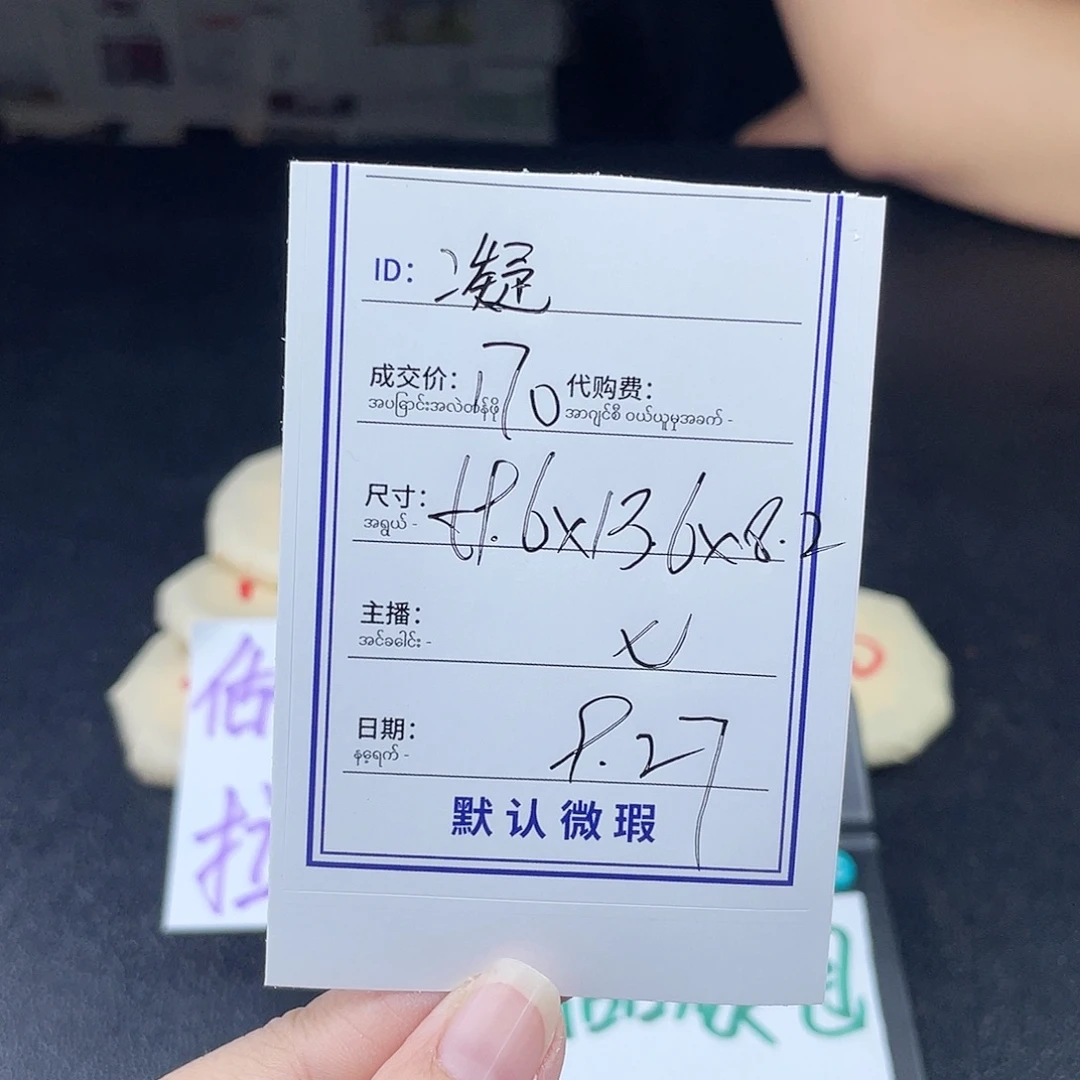 ID：凝
成交价：170 代购费：
အပြောင်းအလဲတန်ဖိုး အာဂျင်စီ ဝယ်ယူမှုအခက် -
尺寸：48.6x13.6x8.2
အရွယ် -
主播：
အင်ခေါင်း -
日期：8.27
နေ့ရက် -
默认微瑕